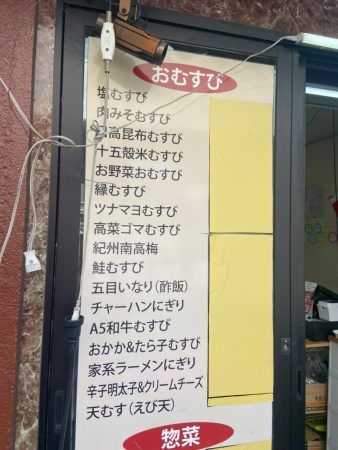 おむすび
塩むすび
肉みそむすび
高昆布むすび
十五穀米むすび
お野菜おむすび
縁むすび
ツナマヨむすび
高菜ゴマむすび
紀州南高梅
鮭むすび
五目いなり(酢飯)
チャーハンにぎり
A5和牛むすび
おかか&たら子むすび
家系ラーメンにぎり
辛子明太子&クリームチーズ
天むす(えび天)
惣菜